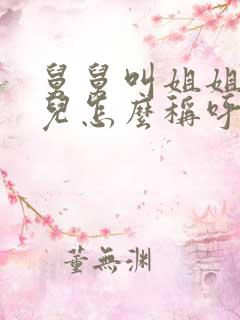 舅舅叫姐姐
兒怎麼稱呼
董無渊